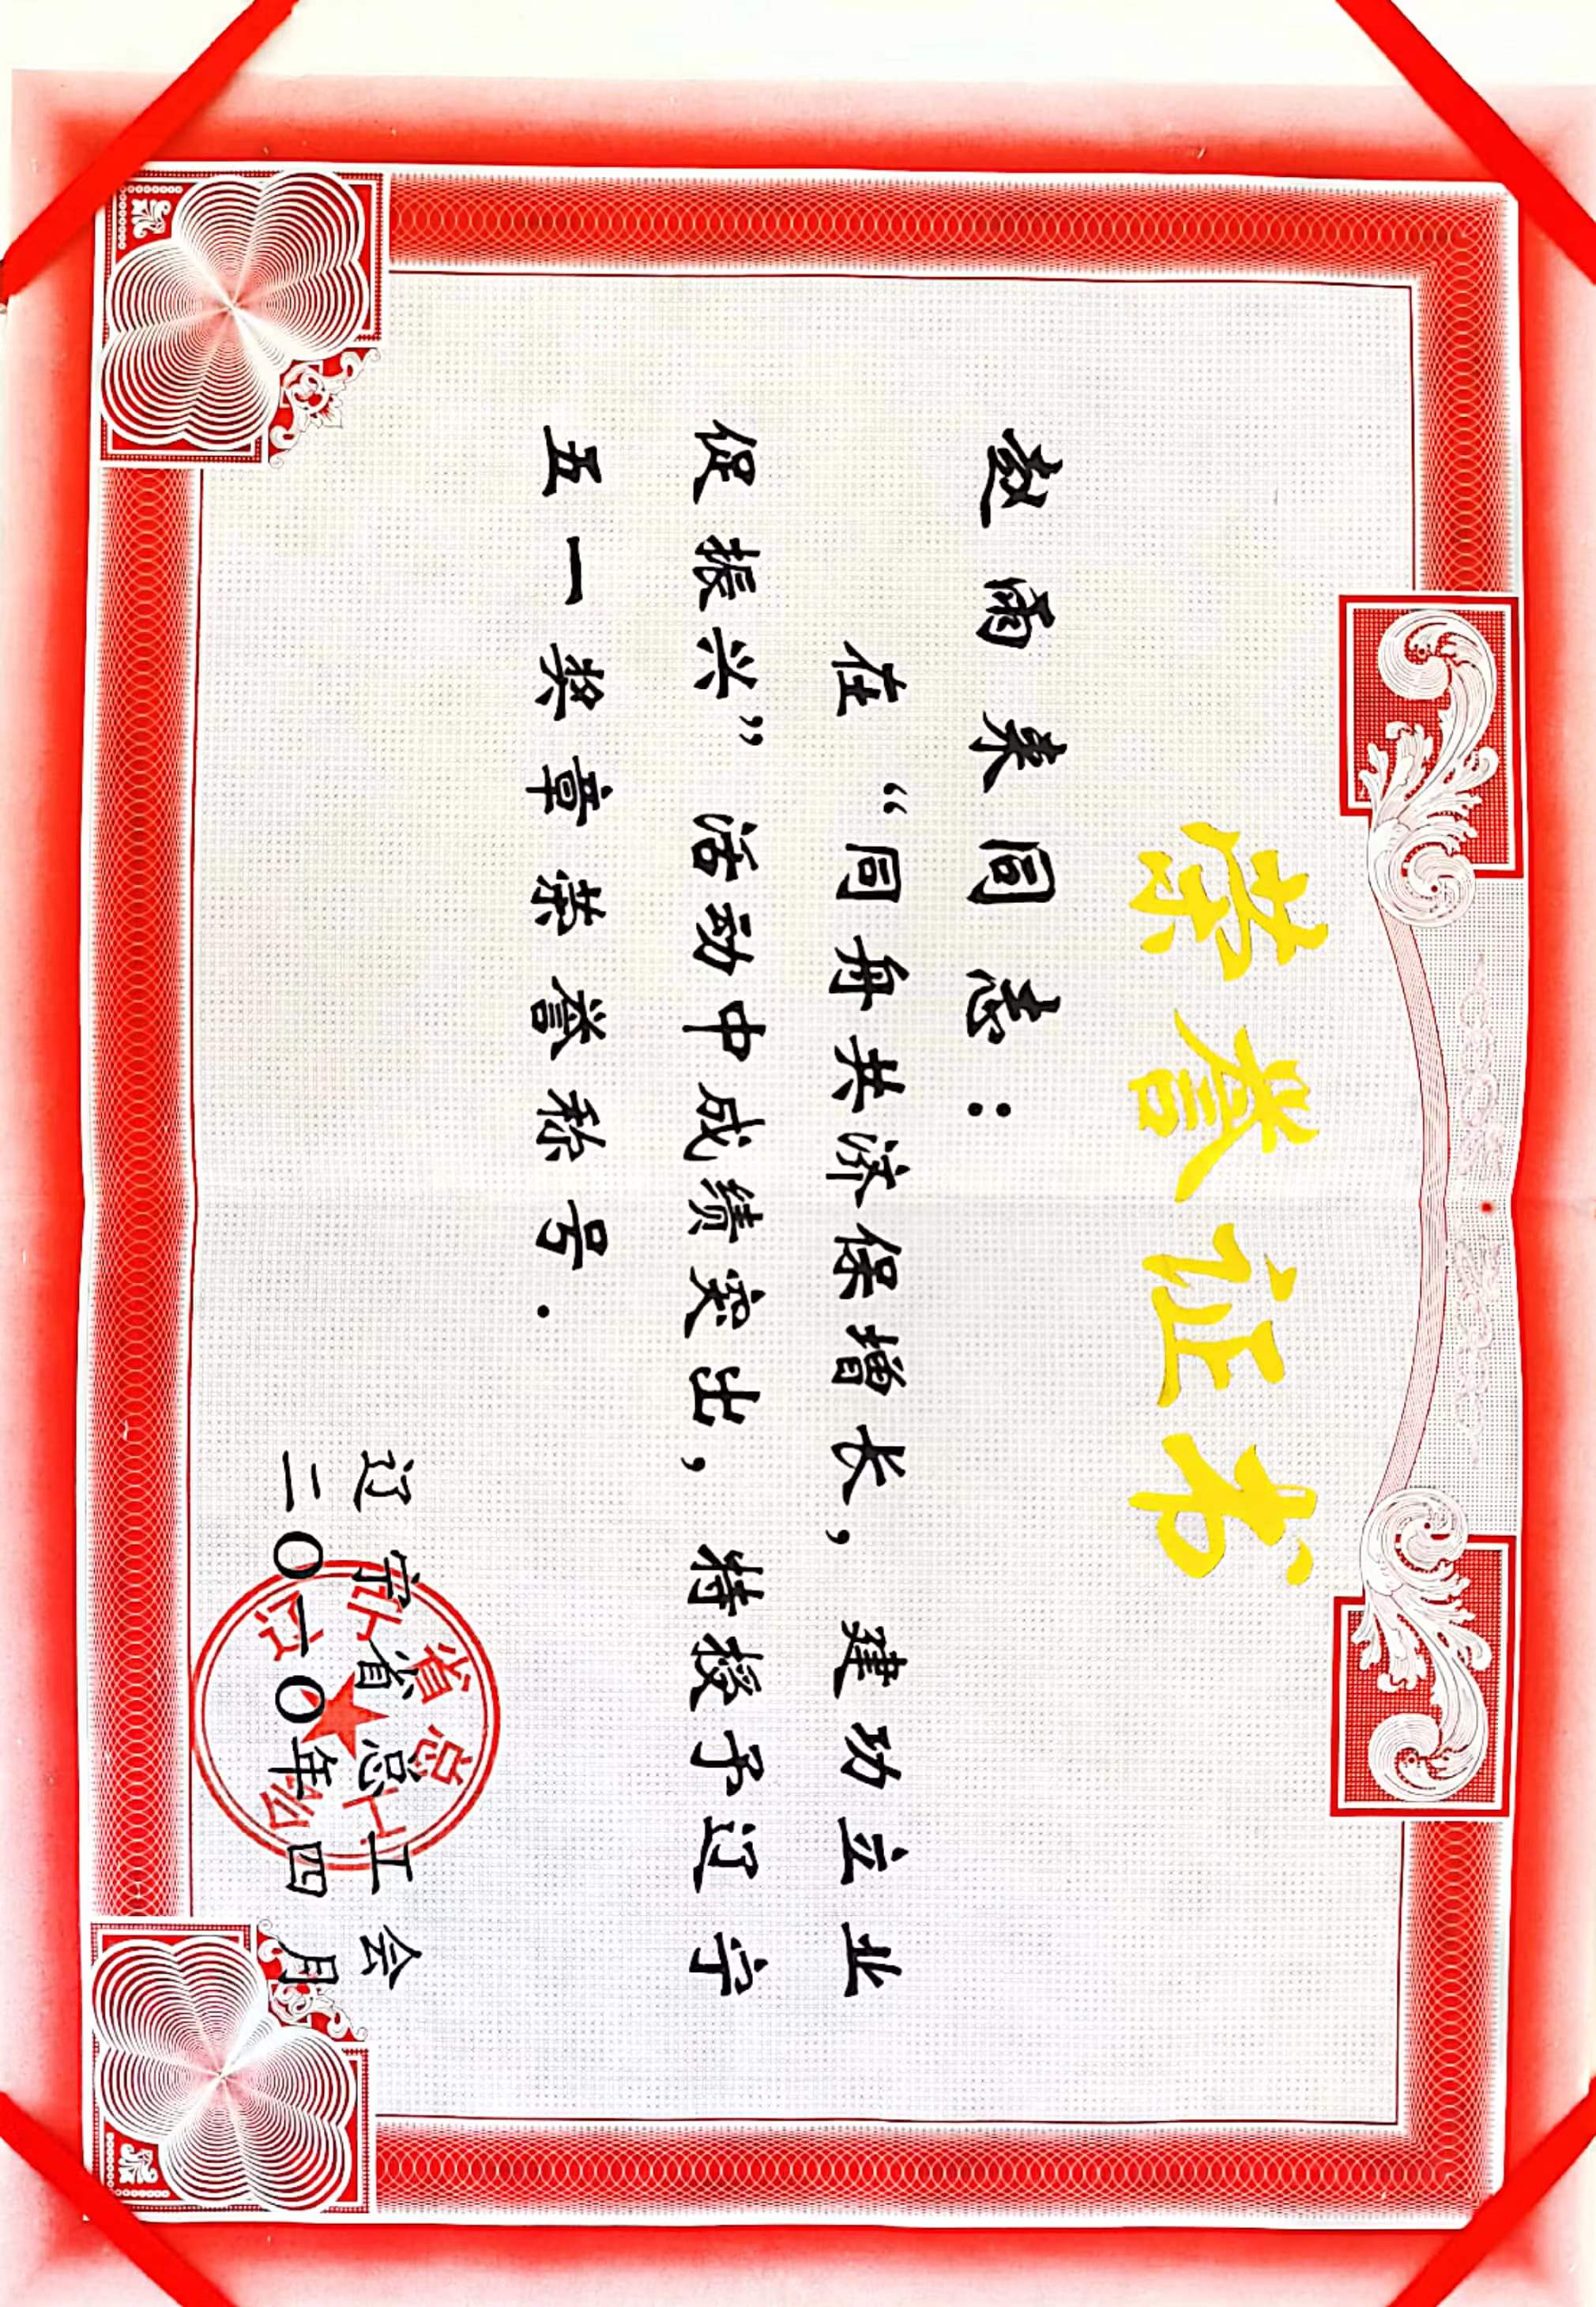 荣誉证书
赵雨来同志：
在“同舟共济保增长，建功立业
促振兴”活动中成绩突出，特授予辽宁
五一奖章荣誉称号．
辽宁省总工会
二〇一〇年四月
辽宁省总工会